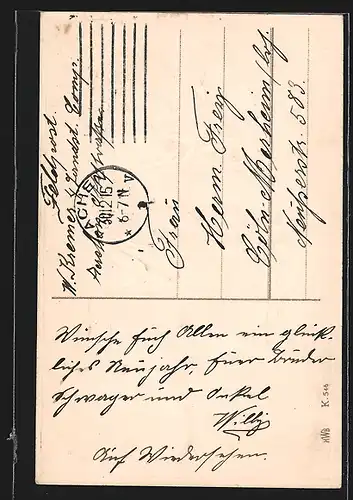 Feldpost.
W. Kremer, Landst. Comp.
AACHEN
30.12.15
6-7 N
Frau
Herm. Frey
Cöln-Merheim/lrh.
Neußerstr. 583.
Wünsche Euch Allen ein glück-
liches Neujahr, Euer Bruder
Schwager und Onkel
Willy
Auf Wiedersehen.
HWB K. 546